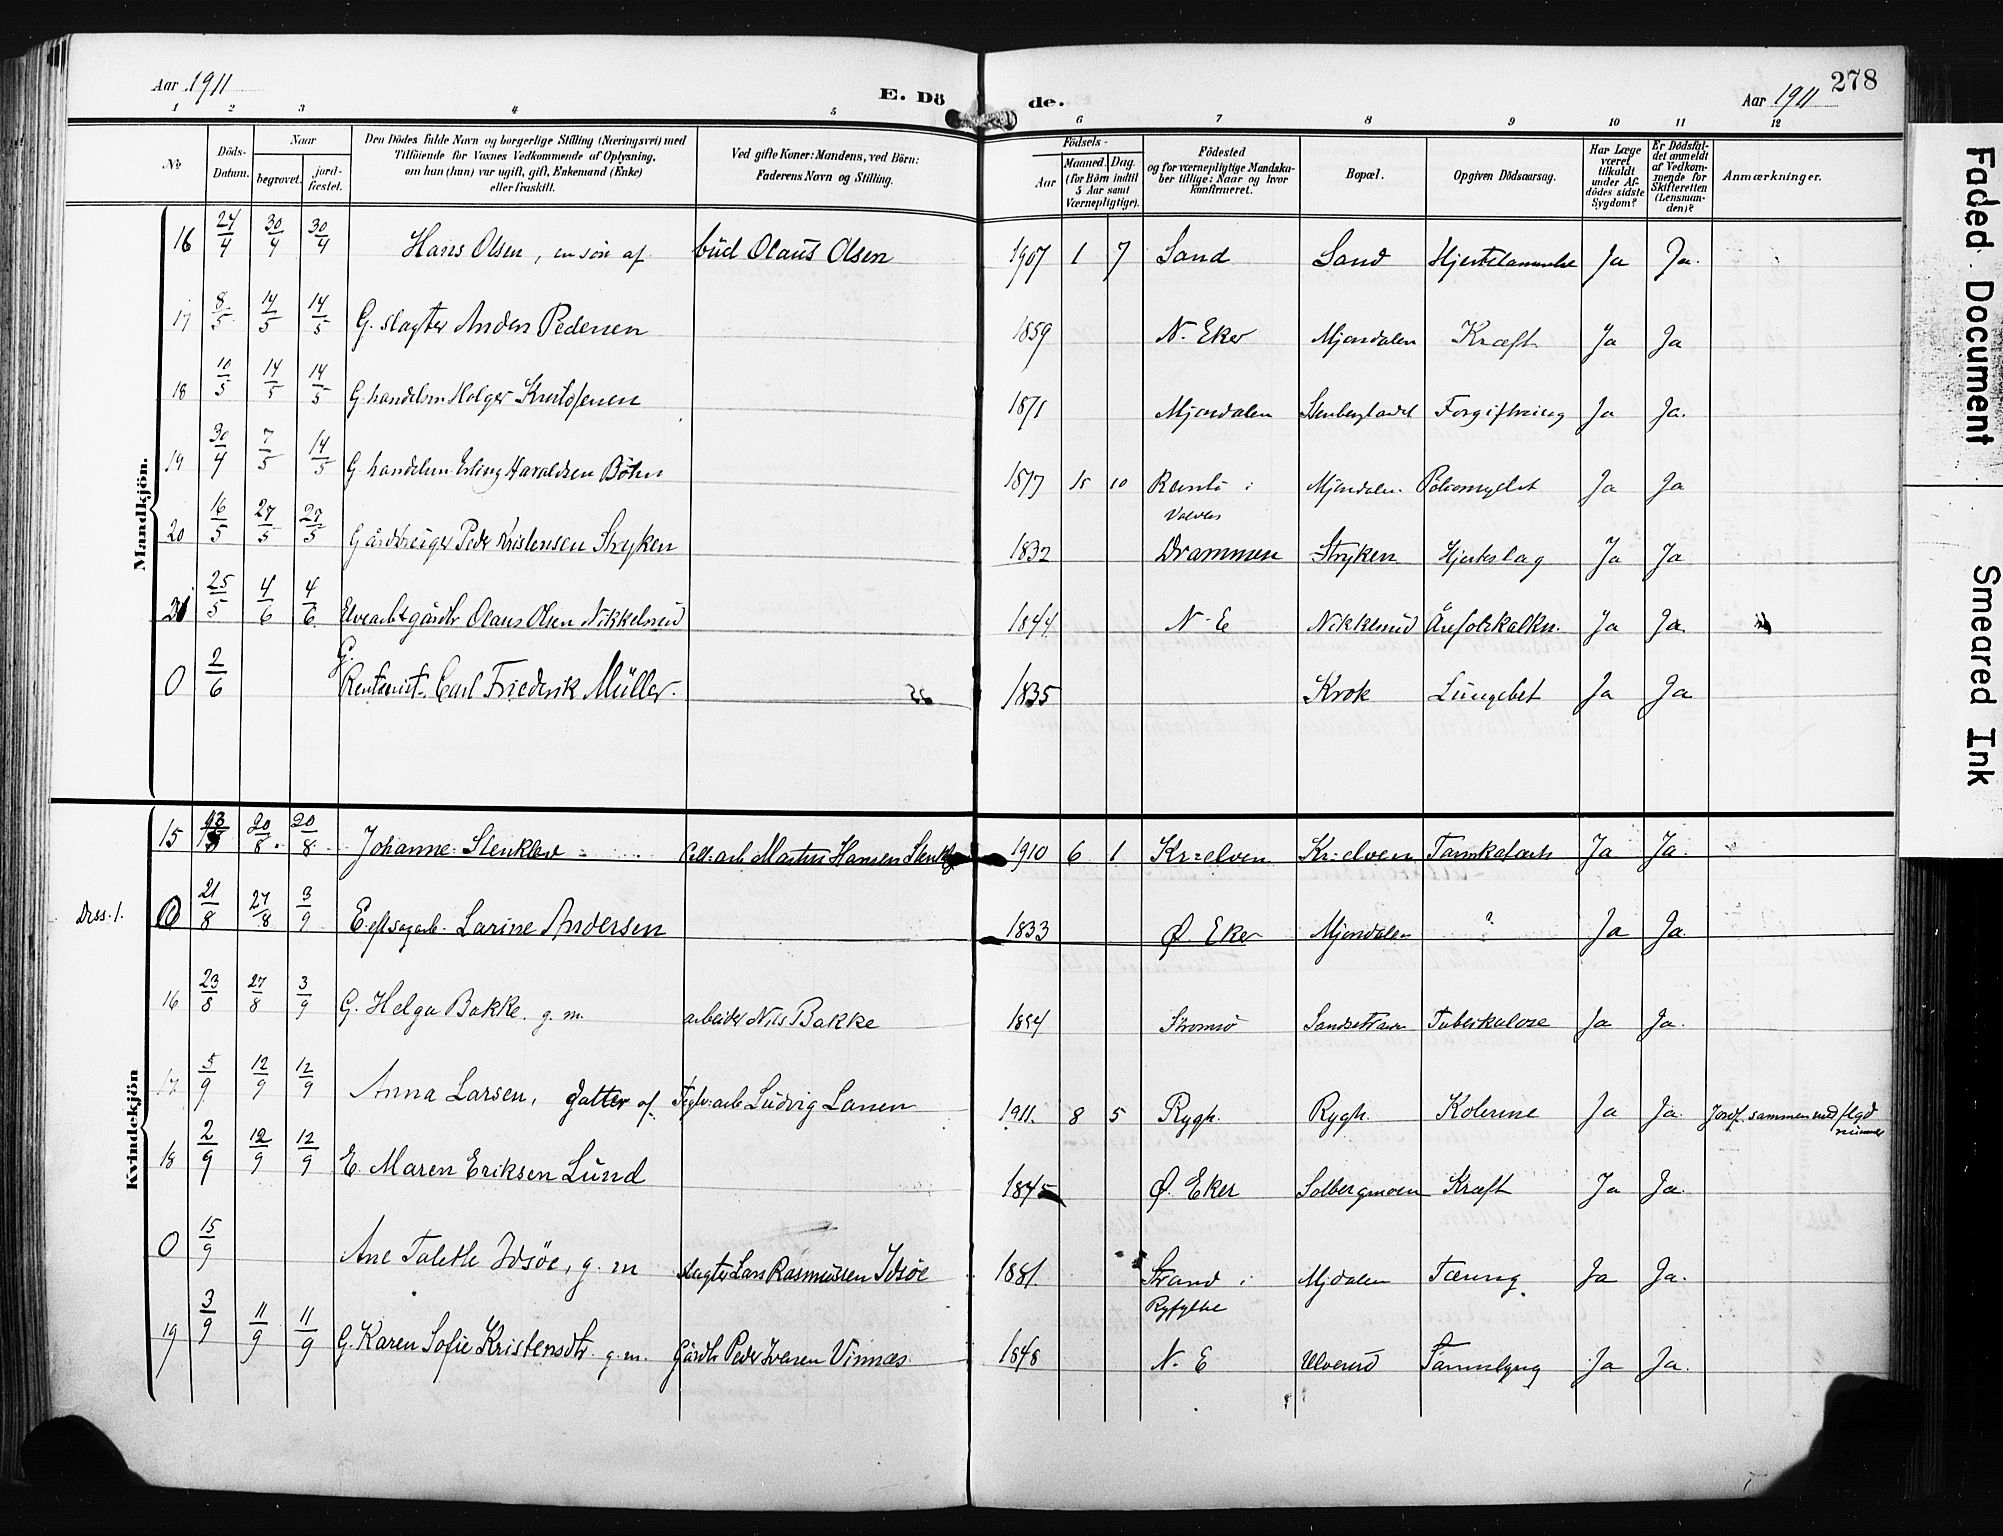 Aar 1911
E. Dö
de.
Aar 1911
278
1 2 3 4 5 6 7 8 9 10 11 12
No
Döds-Datum.
Naar
begravet.
jord-fæstet.
Den Dödes fulde Navn og borgerlige Stilling (Næringsvei) med
Tilföiende for Voxnes Vedkommende af Oplysning,
om han (hun) var ugift, gift, Enkemand (Enke)
eller fraskilt.
Ved gifte Koner: Mandens, ved Börn:
Faderens Navn og Stilling.
Födsels-
Aar
Maaned. Dag.
(for Börn indtil
5 Aar samt
Værnepligtige).
Födested
og for værnepligtige Mandska-
ber tillige: Naar og hvor
konfirmeret.
Bopæl.
Opgiven Dödsaarsag.
Har Læge
været
tilkaldt
under Af-
dödes sidste
Sygdom?
Er Dödsfal-
det anmeldt
af Vedkom-
mende for
Skifteretten
(Lensman-
den)?
Anmærkninger.
Mandkjön.
16 24/4 30/4 30/4 Hans Olsen, en sön af bud Olaus Olsen 1907 1 7 Sand Sand Hjertelammelse Ja Ja.
17 8/5 14/5 14/5 G. slagter Anders Pedersen 1859 N. Eker Mjøndalen Kræft Ja Ja
18 10/5 14/5 14/5 G. handelsm Holger Kristofersen 1871 Mjøndalen Stenberglandet Forgiftning Ja Ja.
19 30/4 7/5 14/5 G. handelsm Erling Haraldsen Böhn 15 10 i Mjøndalen Ja Ja
20 16/5 27/5 27/5 Gårdbruger Peder Kristensen Stryken 1832 Drammen Stryken Hjerteslag Ja Ja
21 25/5 4/6 4/6 Elvearb & gårdbr Olaus Olsen Nikkelsrud 1844 N. E Nikkelsrud Ja Ja
0 2/6 G. Rentenist. Carl Friederik Müller. 1835 Krok Lungebet Ja Ja
Kvindekjön
15 20/8. 20/8 Johanne Stenklev Cell: arb Martin Hansen 1910 6 1 Kr:elven Kr:elven Tarmkatarh Ja Ja.
Diss. 1.
0 21/8 27/8 3/9 E. eft sagarb. Larine Andersen 1833 Ø. Eker Mjøndalen ? Ja Ja
16 23/8 27/8 3/9 G. Helga Bakke. g. m. arbeider Nils Bakke Strømsø Tuberkulose Ja Ja.
17 5/9 12/9 12/9 Anna Larsen, datter af Teglv:arb Ludvig Larsen 1911. 8 5 Rygh. Rygh. Kolerine Ja Ja. Jordf. sammen med flgd
nummer
18 2/9 12/9 12/9 E. Maren Eriksen Lund 1845 Ø. Eker Solbergmoen Kræft Ja Ja.
0 15/9 Ane Talette Idsöe, g. m slagter Lars Rasmussen Idsöe 1881. Strand i
Ryfylke Mjdalen Tæring Ja Ja.
19 3/9 11/9 11/9 G. Karen Sofie Kristensdtr. g. m. Gårdbr Peder Iversen Vinnæs. 1848 N. E Ulverud Tarmslyng Ja Ja.
Faded Document
Smeared Ink